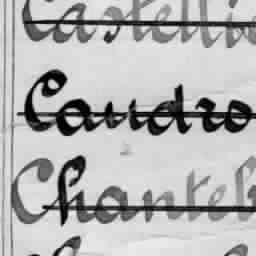 Castellie
Caudro
Chantel